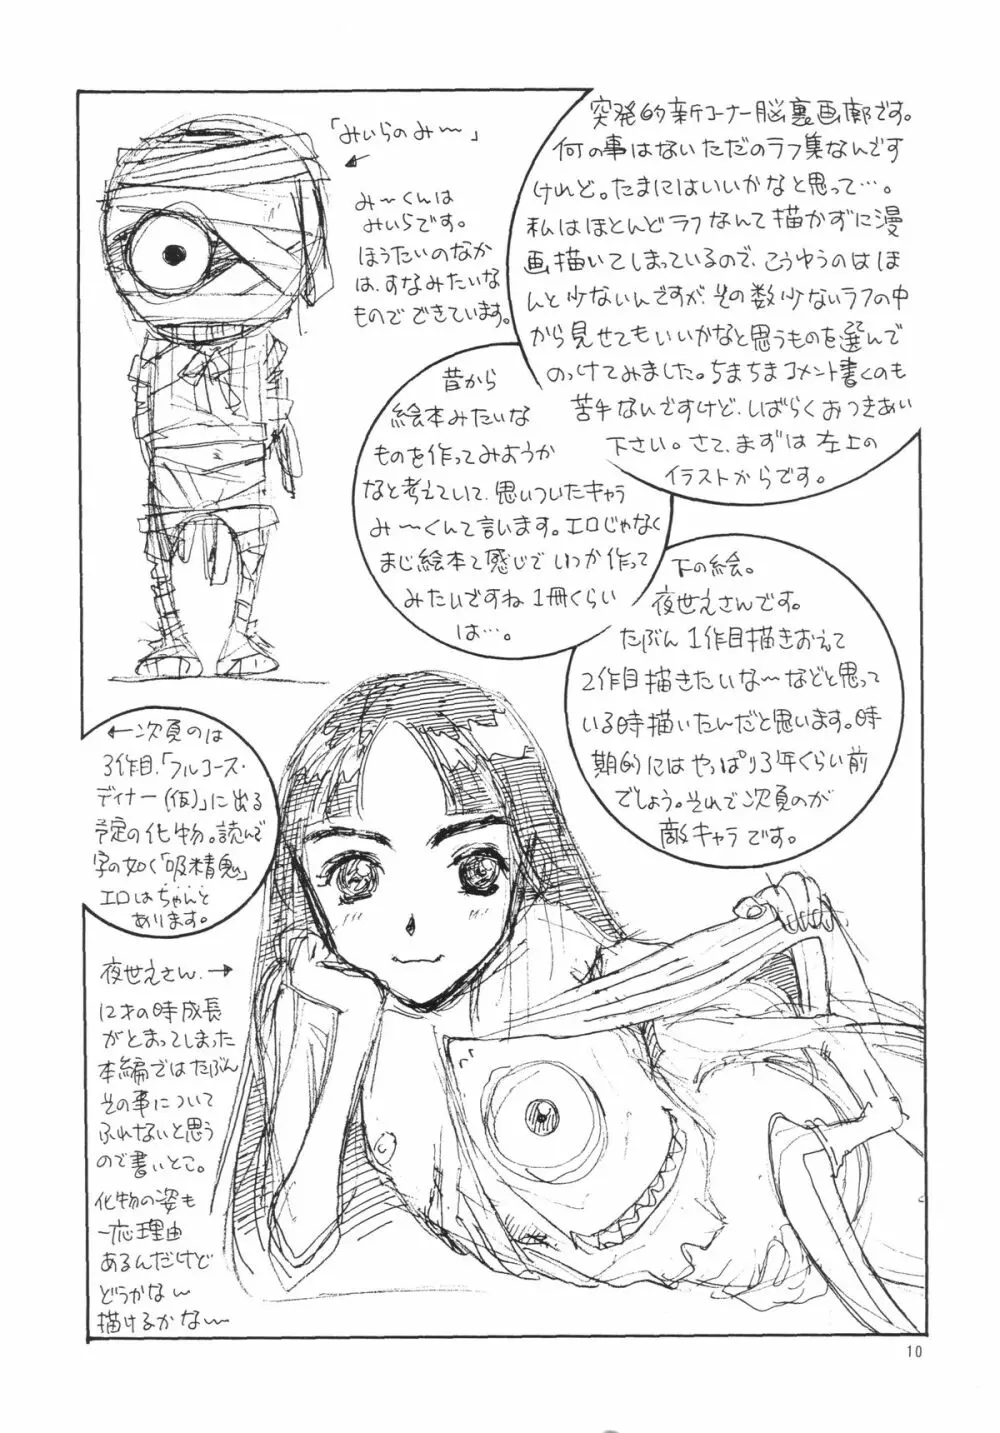 突発的新コーナー脳裏画廊です。
何の事はないただのラフ集なんです
けれど。たまにはいいかなと思って…。
私はほとんどラフなんて描かずに漫
画描いてしまっているので、こうゆうのはほ
んと少ないんですが、その数少ないラフの中
から見せてもいいかなと思うものを選んで
のっけてみました。ちまちまコメント書くのも
苦手なんですけど、しばらくおつきあい
下さい。さて、まずは左上の
イラストからです。
「みいらのみ〜」
み〜くんは
みいらです。
ほうたいのなか
は、すなみたいな
ものでできています。
昔から
絵本みたいな
ものを作ってみようか
なと考えていて、思いついたキャラ
み〜くんて言います。エロじゃなく
まじ絵本て感じでいつか作って
みたいですね1冊くらい
は…。
下の絵。
夜世えさんです。
たぶん1作目描きおえて
2作目描きたいな〜などと思って
いる時描いたんだと思います。時
期的にはやっぱり3年くらい前
でしょう。それで次頁のが
敵キャラです。
←次頁のは
3作目、「フルコース・
ディナー(仮)」に出る
予定の化物。読んで
字の如く「吸精鬼」
エロはちゃんと
あります。
夜世えさん、→
12才の時成長
がとまってしまった
本編ではたぶん
その事について
ふれないと思う
ので書いとこ。
化物の姿も
一応理由
あるんだけど
どうかな〜
描けるかな〜
10